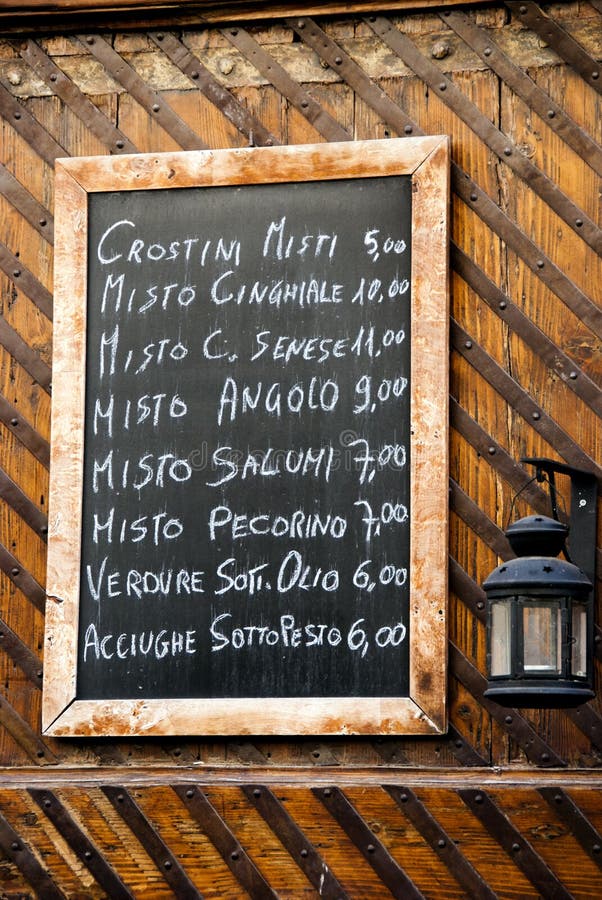 CROSTINI MISTI 5,00
MISTO CINGHIALE 10,00
MISTO C. SENESE 11,00
MISTO ANGOLO 9,00
MISTO SALUMI 7,00
MISTO PECORINO 7,00
VERDURE SOTT.OLIO 6,00
ACCIUGHE SOTTOPESTO 6,00